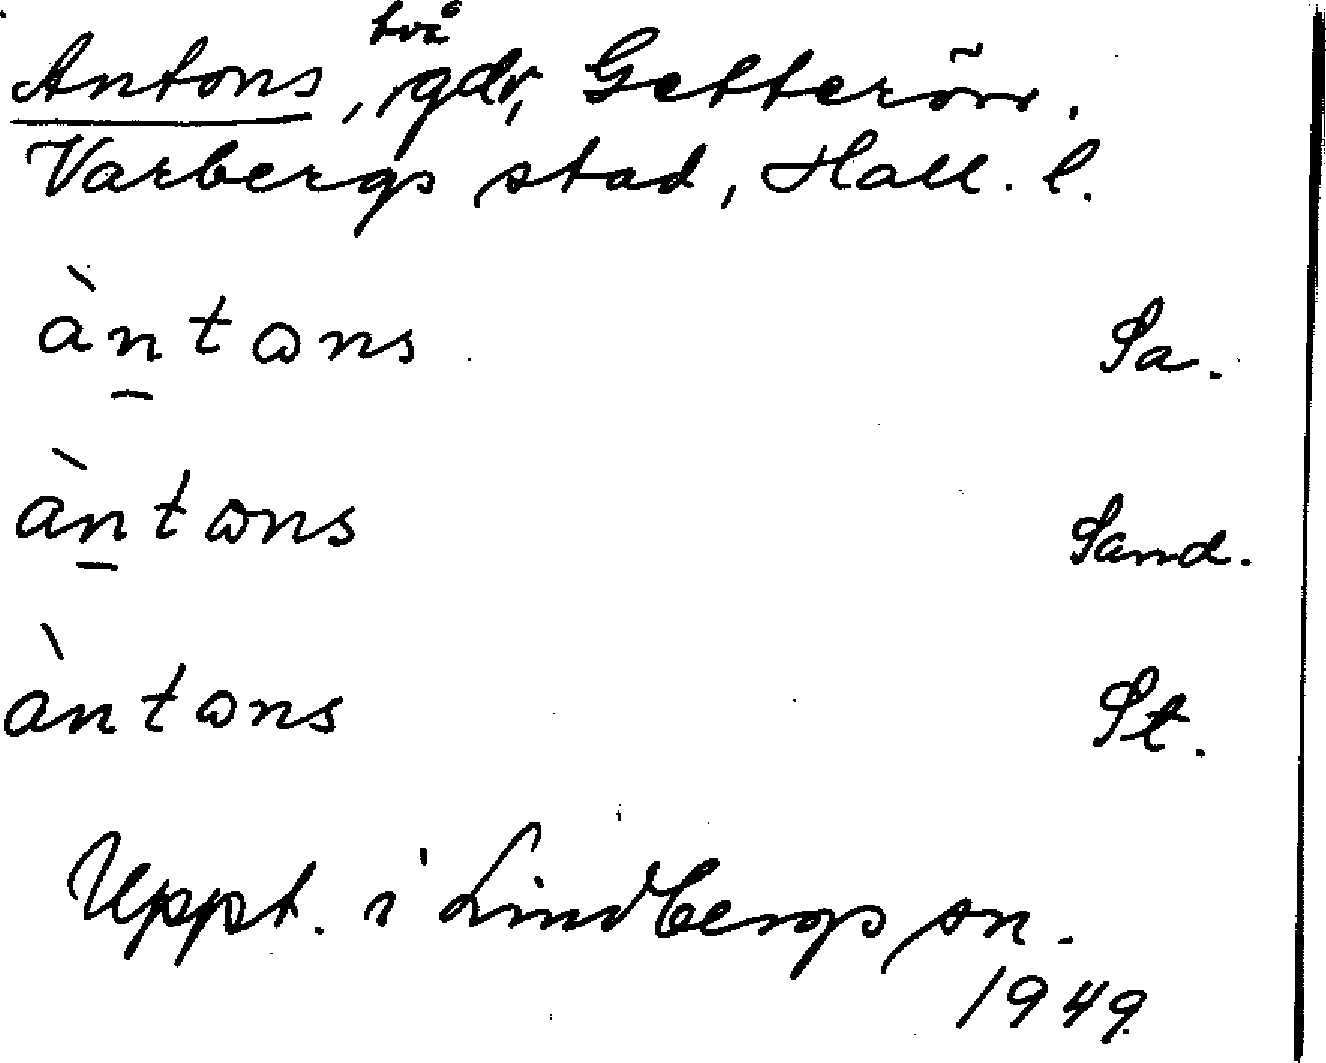 Antons, två gdr, Getterön.
Varbergs stad, Hall. l.
àntωns Sa.
àntωns Sand.
àntωns St.
Uppt. i Lindbergs sn.
1949.